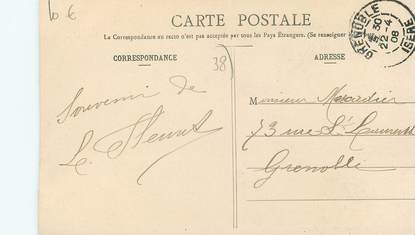 10 €
CARTE POSTALE
La Correspondance au recto n'est pas acceptée par tous les Pays Étrangers. (Se renseigner
CORRESPONDANCE
ADRESSE
GRENOBLE
ISÈRE
30
22 - 4
08
38
Souvenir de
Monsieur
73 rue St Laurent
Grenoble